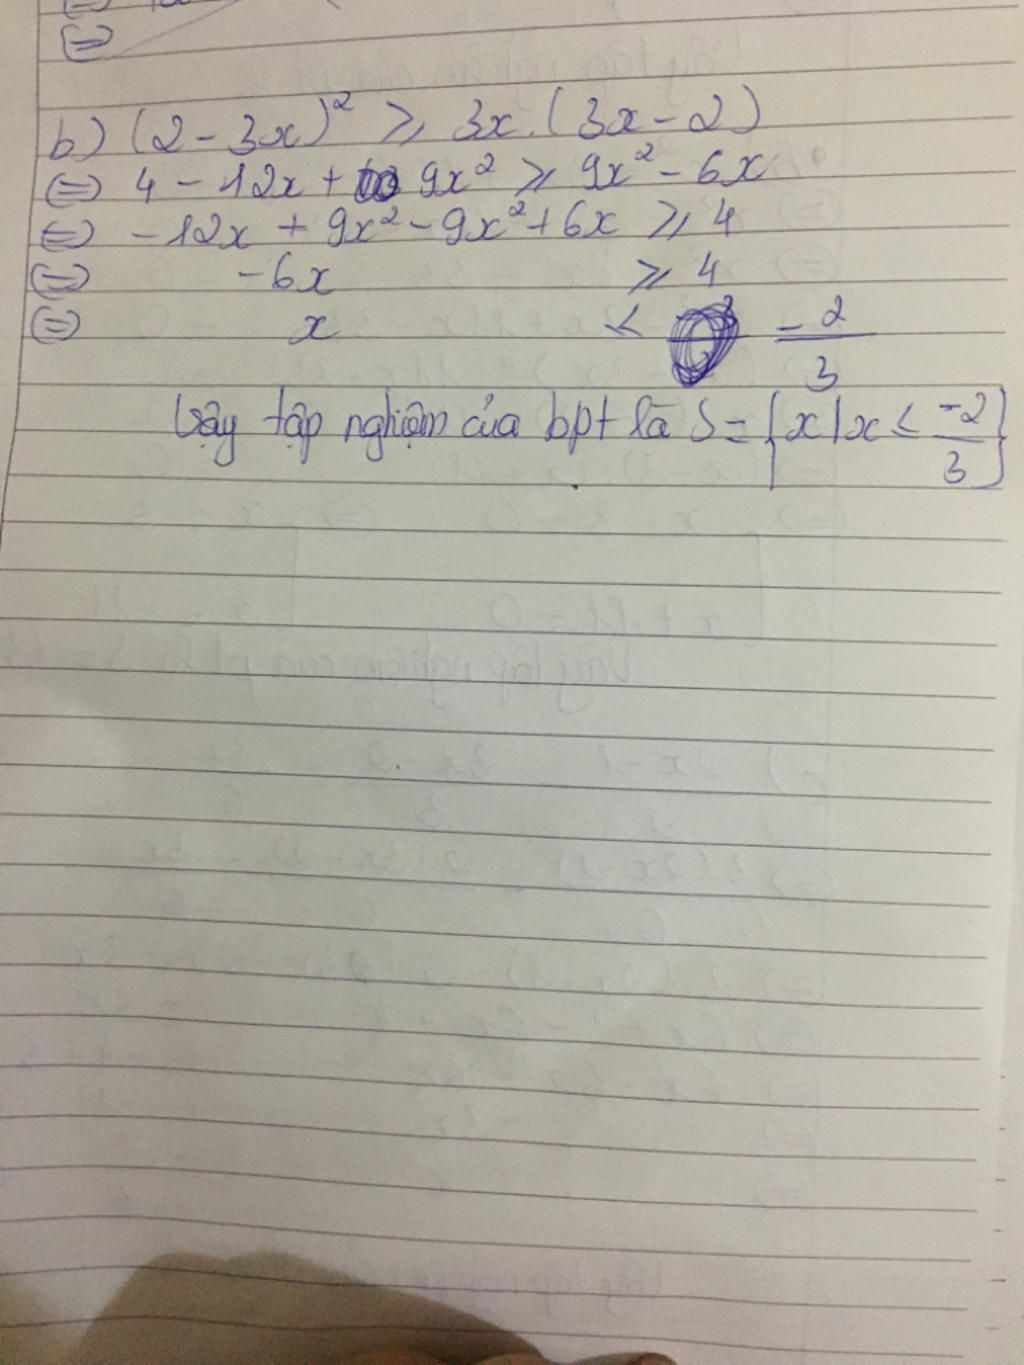 (=)
b) (2 - 3x)² ⩾ 3x. (3x - 2)
(=) 4 - 12x + 9x² ⩾ 9x² - 6x
(=) -12x + 9x² - 9x² + 6x ⩾ 4
(=) -6x ⩾ 4
(=) x < -2/3
Vậy tập nghiệm của bpt là S = {x | x ≤ -2/3}